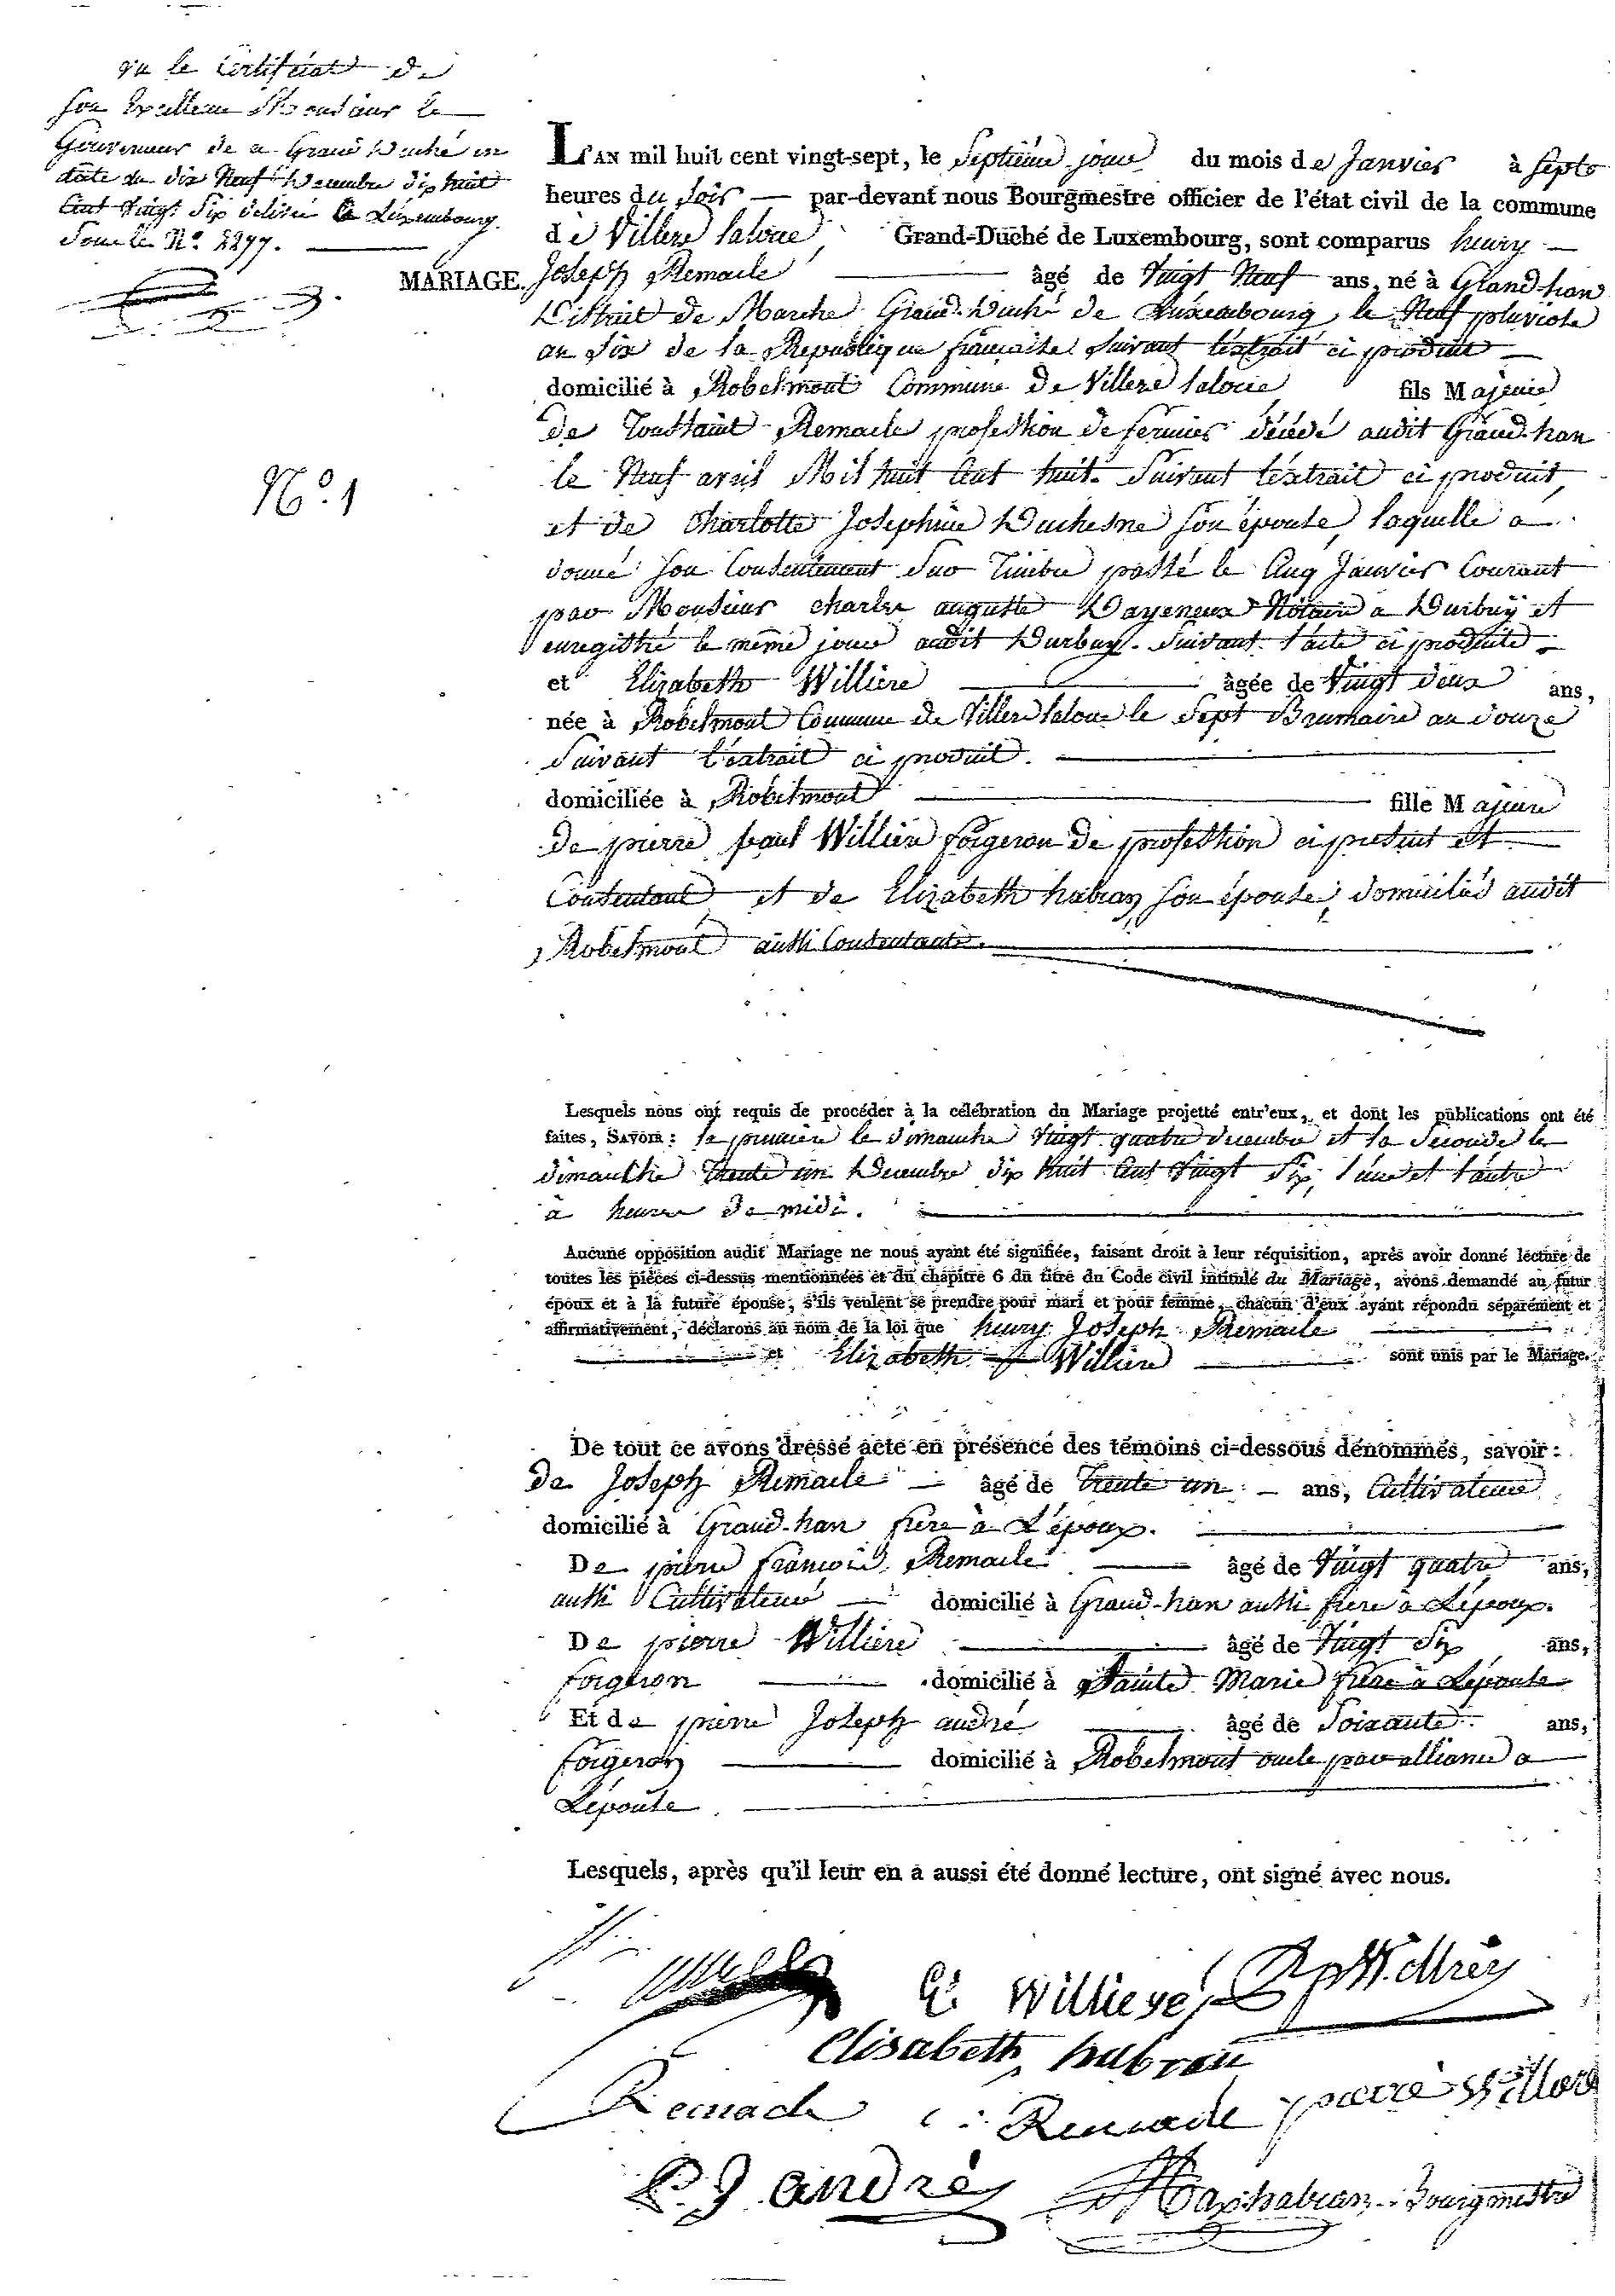 vu le Certificat de
son Excellence Monsieur le
Gouverneur de ce Grand Duché en
date du dix Neuf Decembre dix huit
Cent Vingt Six delivré à Luxembourg
sous le N.º 2277.
MARIAGE.
Nº. 1
L'AN mil huit cent vingt-sept, le Septième jour du mois de Janvier à Septe
heures du soir — par-devant nous Bourgmestre officier de l'état civil de la commune
de Villers laloue, Grand-Duché de Luxembourg, sont comparus henry —
Joseph Remacle âgé de Vingt Neuf ans, né à Grand-han
District de Marche Grand-Duché de Luxembourg, le Neuf pluviose
an Six de la Republique française suivant l'extrait ci produit —
domicilié à Robelmont Commune de Villers laloue fils Majeur
de Toussaint Remacle profession de fermier décédé audit Grand-han
le Neuf avril Mil huit Cent huit. Suivant l'extrait ci produit,
et de Charlotte Josephine Duchesne son épouse, laquelle a
donné son Consentement sur Timbre passé le Cinq Janvier Courant
par Monsieur charles auguste Dayeneux Notaire a Durbuÿ et
enregistré le même jour audit Durbuy. Suivant l'acte ci produite —
et Elizabeth Williere âgée de Vingt deux ans,
née à Robelmont Commune de Villers laloue le Sept Brumaire an douze
Suivant l'extrait ci produit.
domiciliée à Robelmont fille Majeure
de pierre paul Williere forgeron de profession ci present et
Consentant et de Elizabeth habran son épouse, domiciliés audit
Robelmont aussi Consentante.
Lesquels nous ont requis de procéder à la célébration du Mariage projetté entr'eux, et dont les publications ont été
faites, SAVOIR : la premiere le dimanche Vingt quatre decembre et la Seconde le
dimanche trente un Decembre dix huit Cent Vingt Six, l'une et l'autre
à heure de midi.
Aucune opposition audit Mariage ne nous ayant été signifiée, faisant droit à leur réquisition, après avoir donné lecture de
toutes les pièces ci-dessus mentionnées et du chapitre 6 du titre du Code civil intitulé du Mariage, avons demandé au futur
époux et à la future épouse, s'ils veulent se prendre pour mari et pour femme, chacun d'eux ayant répondu séparément et
affirmativement, déclarons au nom de la loi que henry Joseph Remacle
et Elizabeth Williere sont unis par le Mariage.
De tout ce avons dressé acte en présence des témoins ci-dessous dénommés, savoir :
de Joseph Remacle — âgé de trente un — ans, Cultivateur
domicilié à Grand-han frère à L'époux.
De pierre françois Remacle âgé de Vingt quatre ans,
aussi Cultivateur — domicilié à Grand-han aussi frere à L'époux.
De pierre Williere âgé de Vingt Six ans,
forgeron domicilié à Sainte Marie frere à L'épouse
Et de pierre Joseph andré âgé de Soixante ans,
forgeron domicilié à Robelmont oncle par alliance a
L'épouse
Lesquels, après qu'il leur en a aussi été donné lecture, ont signé avec nous.
E Williere
Elisabeth habran
Remacle Remacle pierre Willere
P. J andré habran Bourgmestre